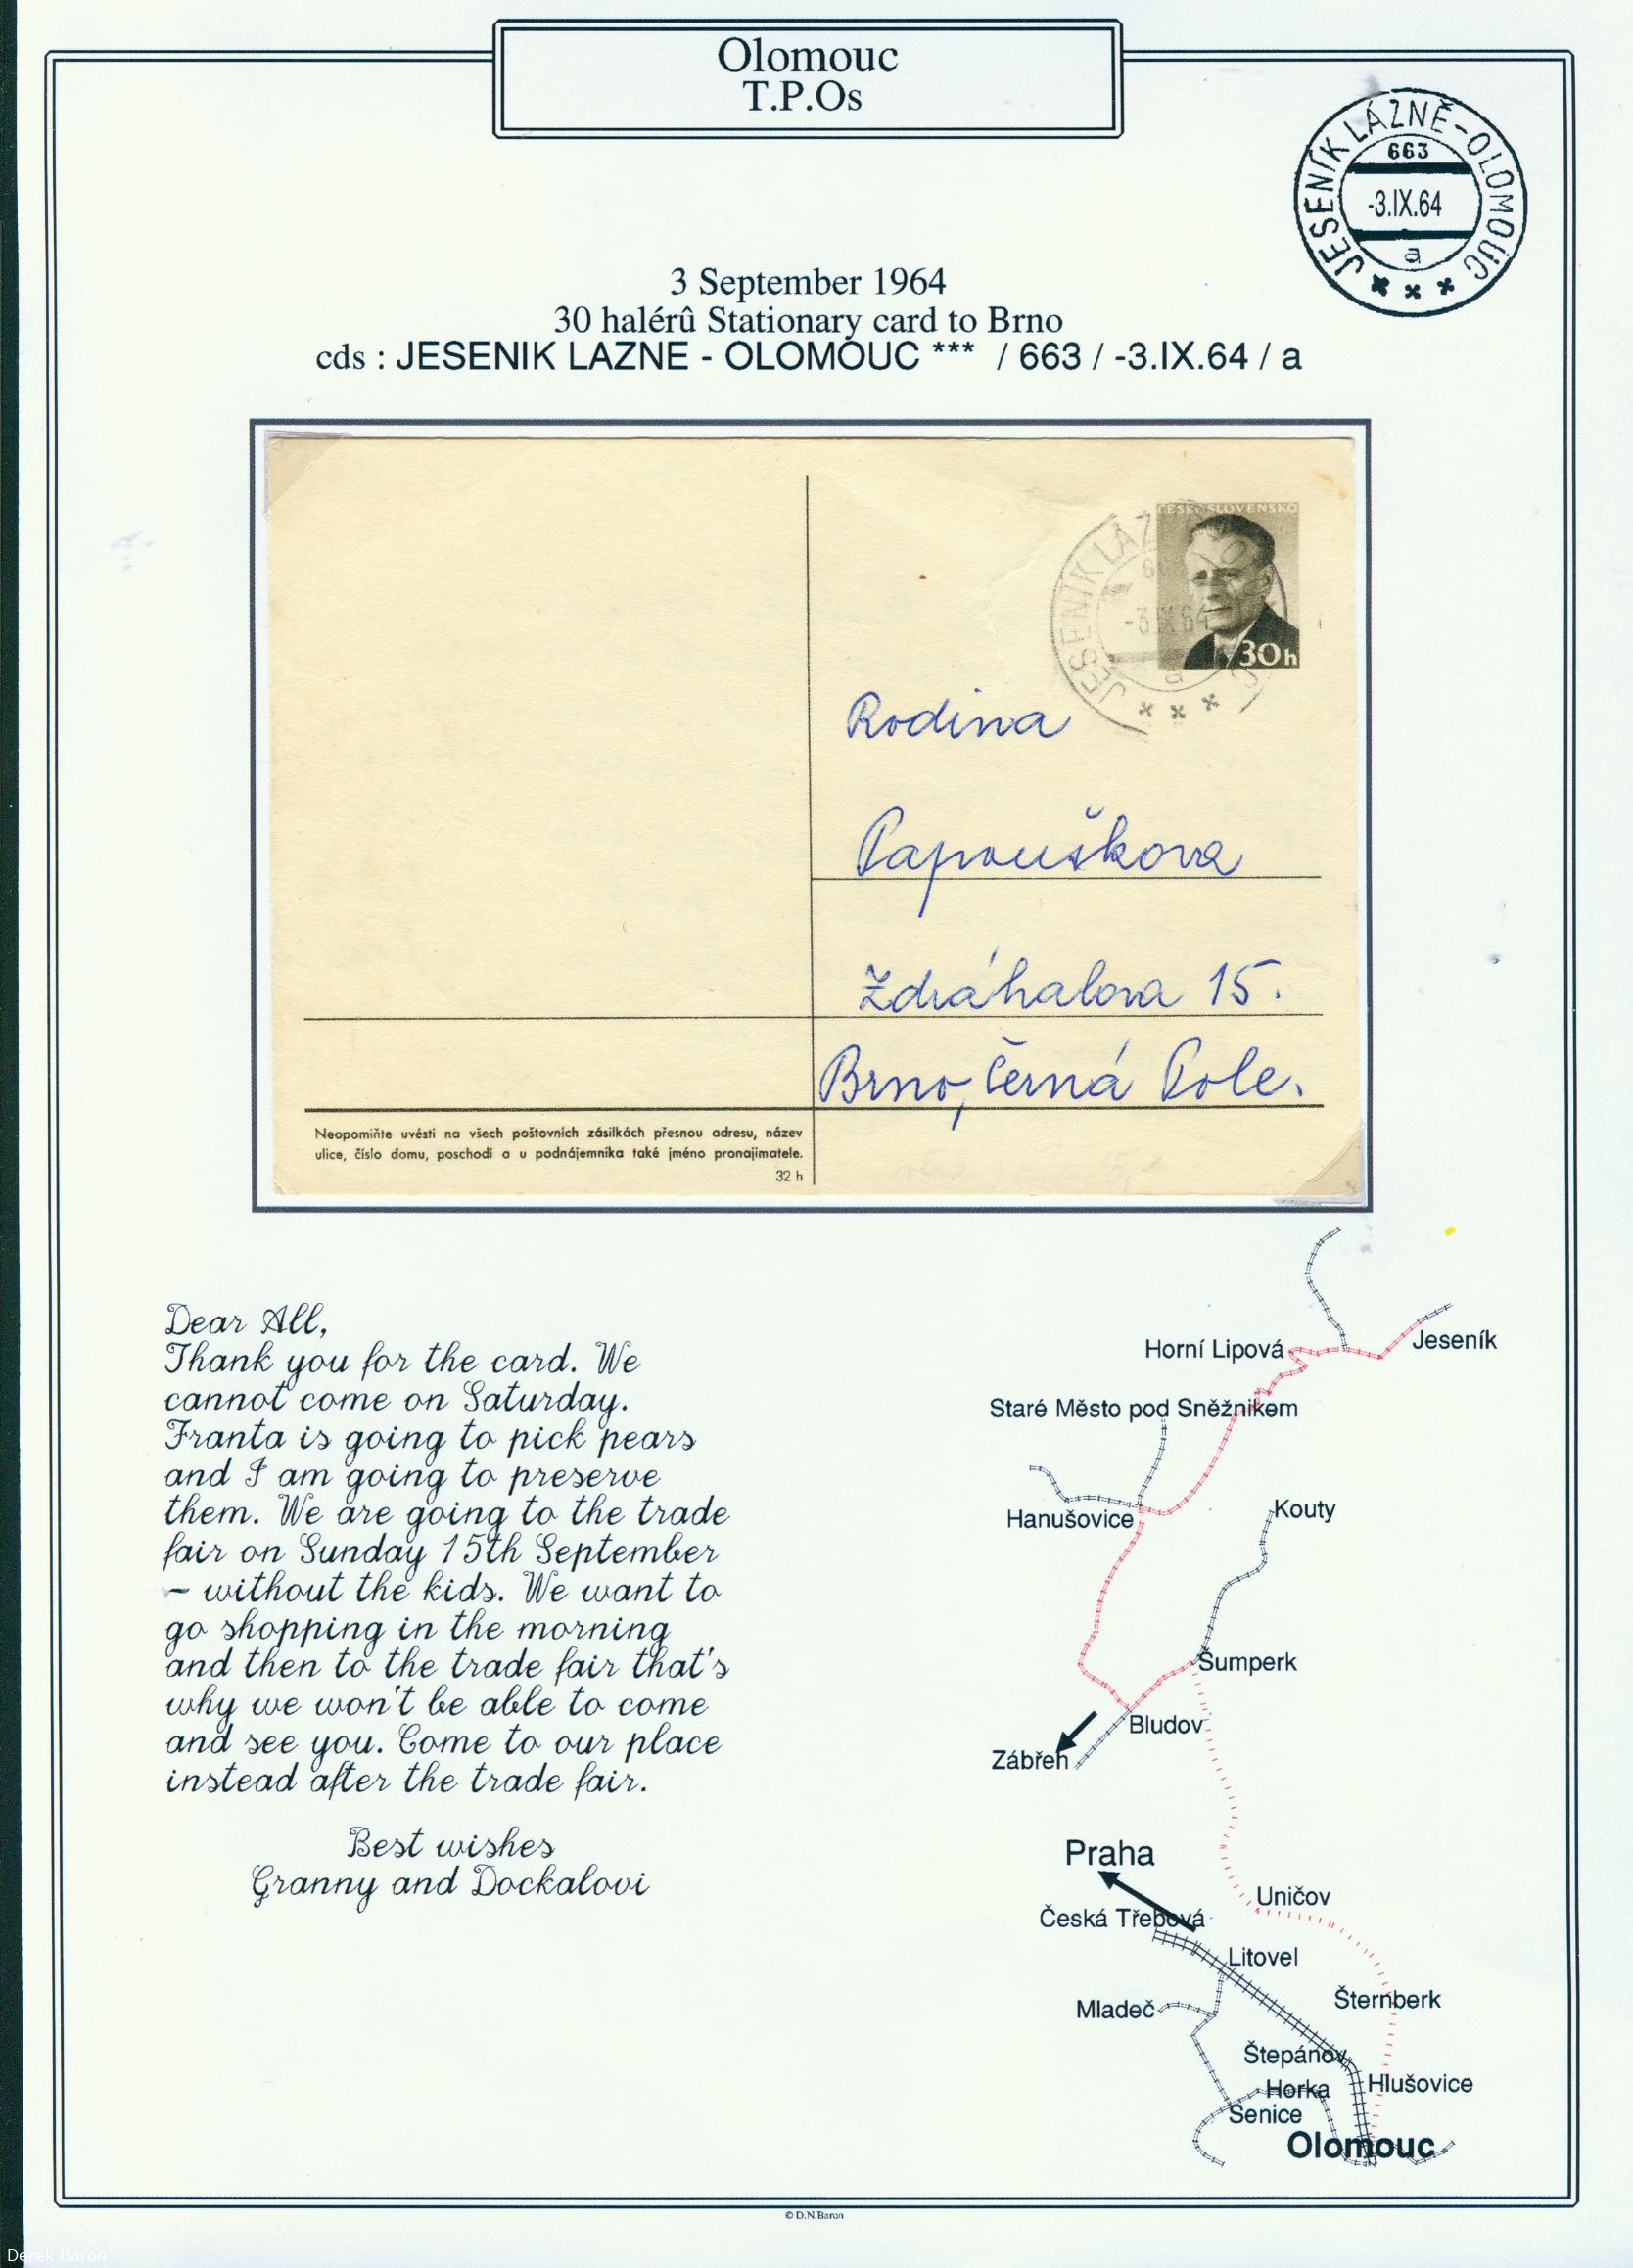 Olomouc
T.P.Os
JESENÍK LÁZNĚ - OLOMOUC
663
-3.IX.64
a
3 September 1964
30 halérû Stationary card to Brno
cds : JESENIK LAZNE - OLOMOUC *** / 663 / -3.IX.64 / a
ČESKOSLOVENSKO
JESENÍK LÁZ
-3.IX.64
a
30h
Rodina
Papouškova
Zdráhalova 15.
Brno, Černá Pole.
Neopomiňte uvésti na všech poštovních zásilkách přesnou adresu, název
ulice, číslo domu, poschodí a u podnájemníka také jméno pronajimatele.
32 h
Dear All,
Thank you for the card. We
cannot come on Saturday.
Franta is going to pick pears
and I am going to preserve
them. We are going to the trade
fair on Sunday 15th September
– without the kids. We want to
go shopping in the morning
and then to the trade fair that's
why we won't be able to come
and see you. Come to our place
instead after the trade fair.
Best wishes
Granny and Dockalovi
Jeseník
Horní Lipová
Staré Město pod Sněžnikem
Kouty
Hanušovice
Šumperk
Bludov
Zábřeh
Praha
Uničov
Česká Třebová
Litovel
Šternberk
Mladeč
Štepánov
Hlušovice
Horka
Senice
Olomouc
© D.N.Baron
Derek Baron